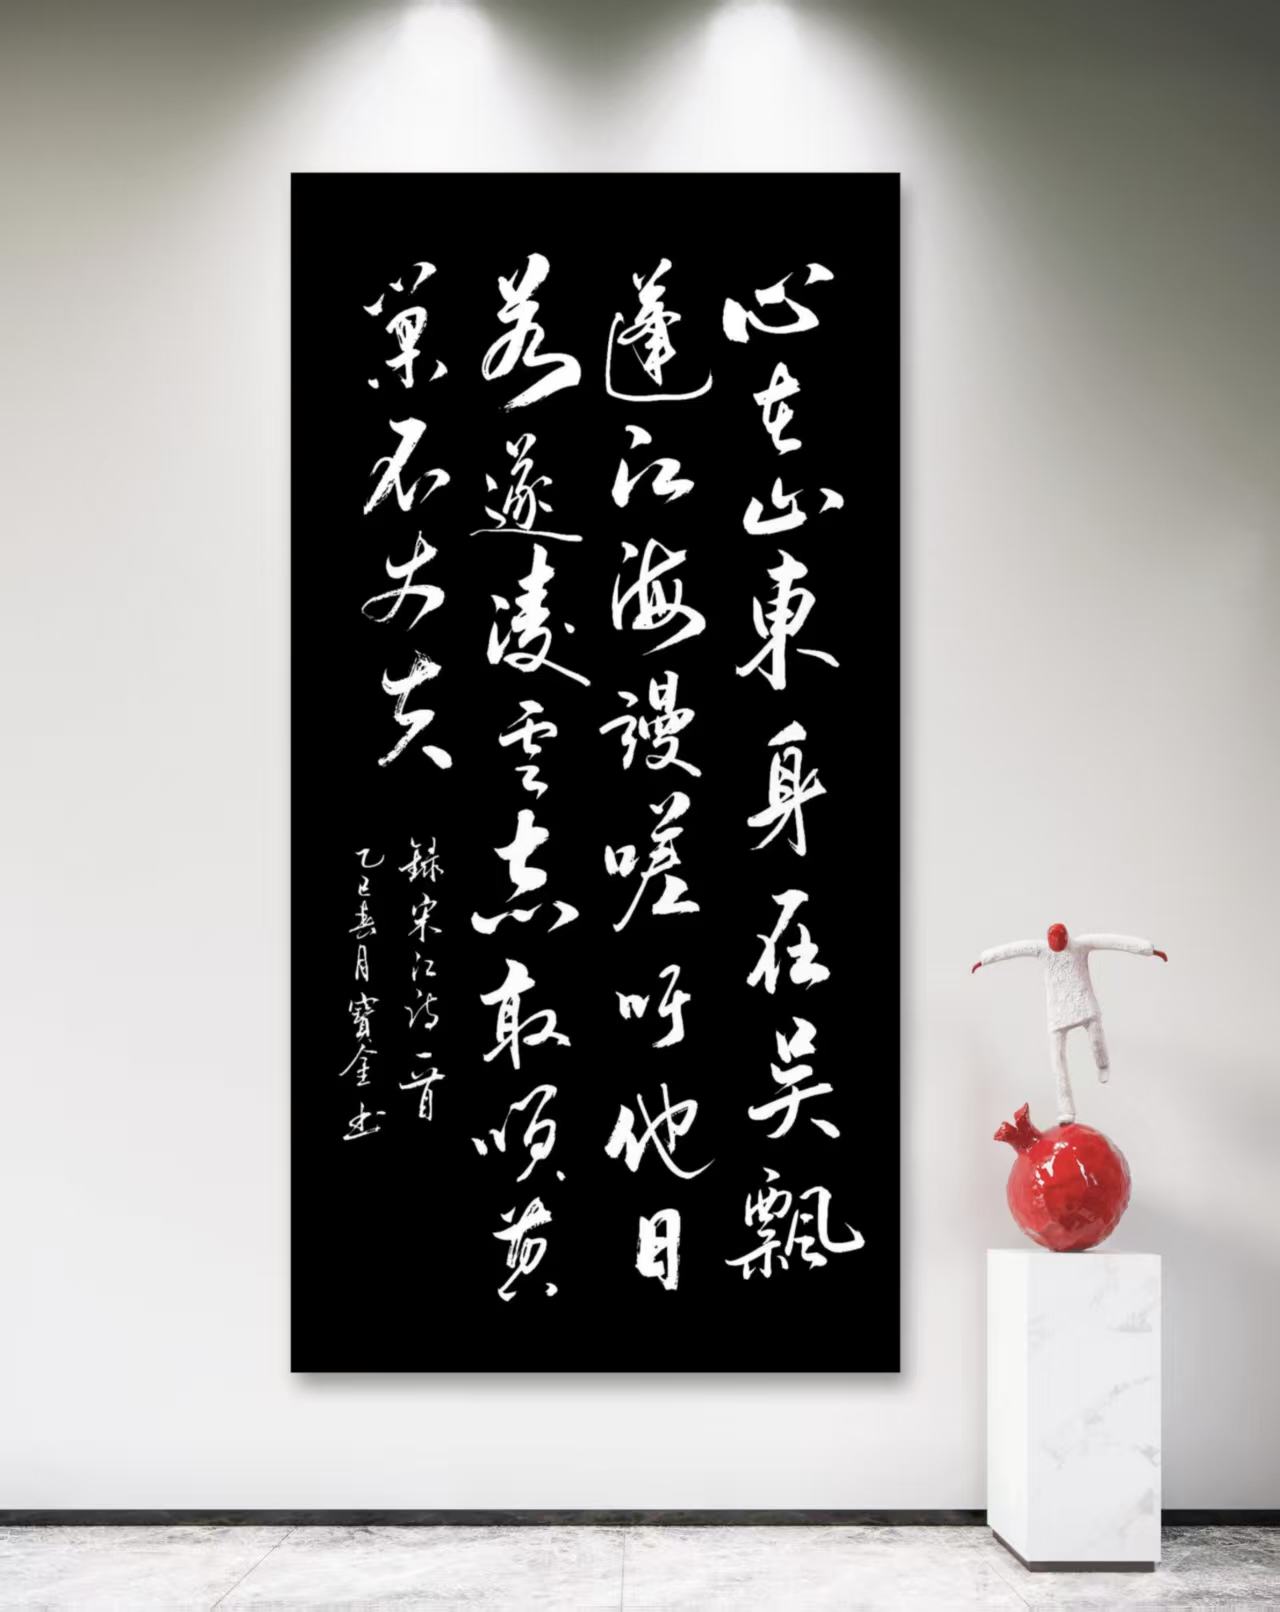 心在山東身在吴飄
蓬江海謾嗟吁他日
若遂凌雲志敢順黄
巢不丈夫
録宋江詩一首
乙巳春月寶金书